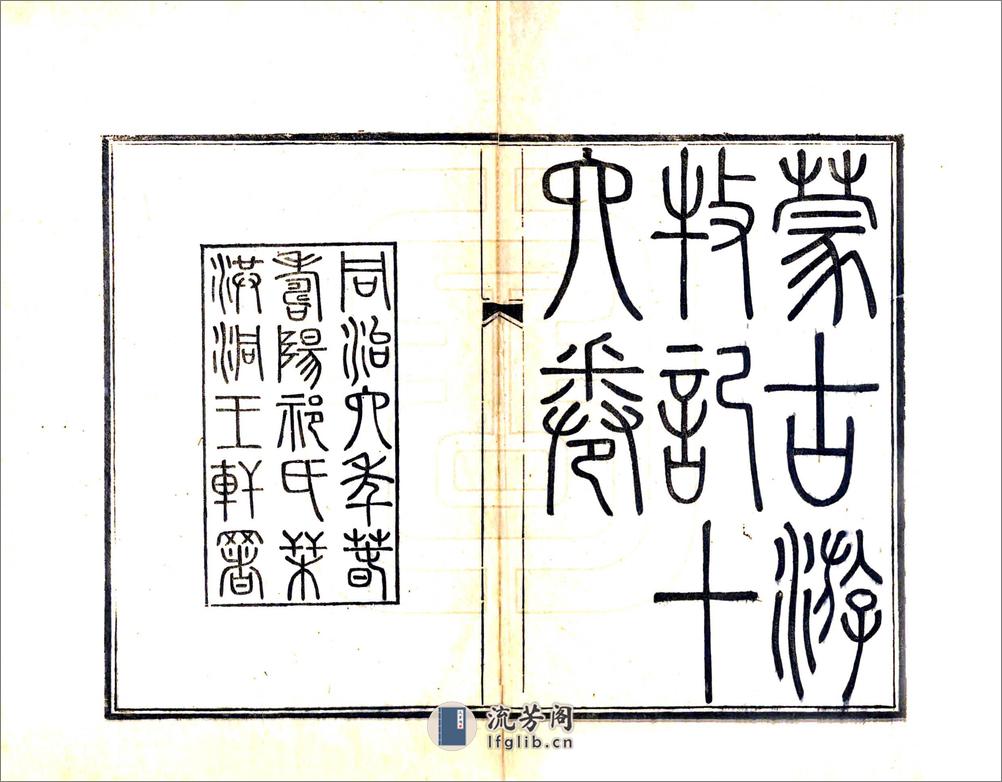 蒙古游
牧記十
六卷
同治六年春
壽陽祁氏栞
洪洞王軒署
流芳阁
lfglib.cn